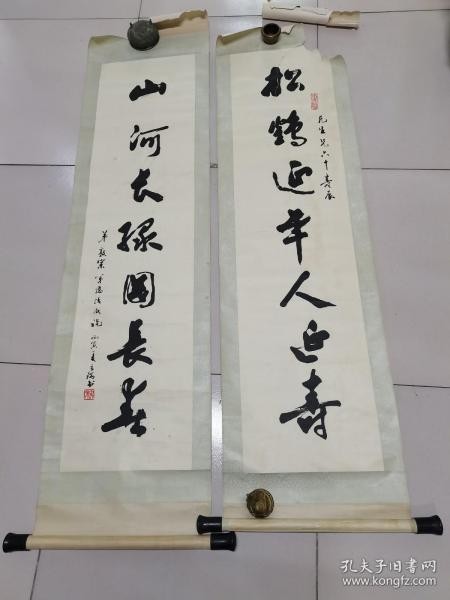 松鹤延年人延寿
民生兄六十寿辰
山河长绿国长春
孔夫子旧书网
www.kongfz.com